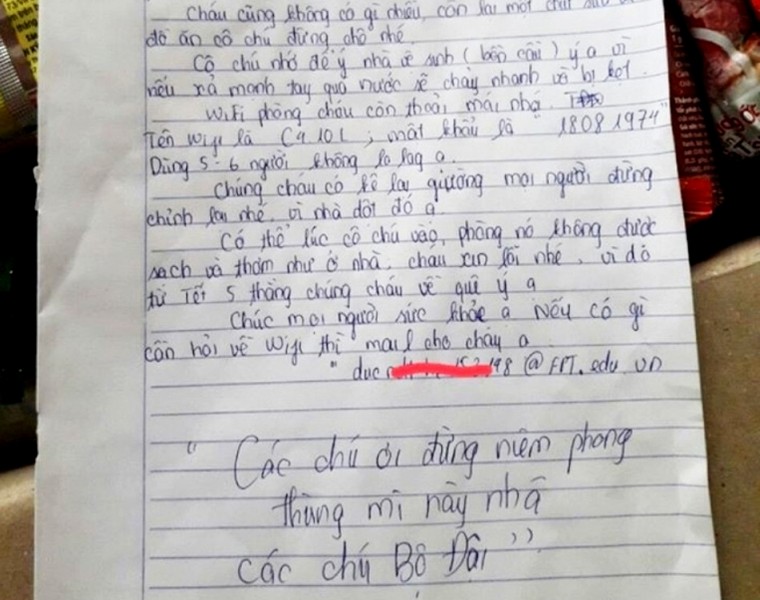 Cháu cũng không có gì nhiều, còn lại một chút
đồ ăn cô chú đừng chê nhé
Cô chú nhớ để ý nhà vệ sinh (bồn cầu) ý ạ vì
nếu xả mạnh tay quá nước sẽ chảy nhanh và bị kẹt.
Wifi phòng cháu còn thoải mái nhé.
Tên Wifi là C4101, mật khẩu là 18081974"
Dùng 5-6 người không lo lag ạ.
Chúng cháu có kê lại giường mọi người đừng
chỉnh lại nhé, vì nhà dột đó ạ
Có thể lúc cô chú vào, phòng nó không được
sạch và thơm như ở nhà, cháu xin lỗi nhé, vì đó
từ Tết 5 tháng chúng cháu về quê ý ạ
Chúc mọi người sức khỏe ạ Nếu có gì
cần hỏi về Wifi thì mail cho cháu ạ
" duc 198@FPT.edu vn
" Các chú ơi đừng niêm phong
thùng mì này nhá
các chú Bộ Đội "